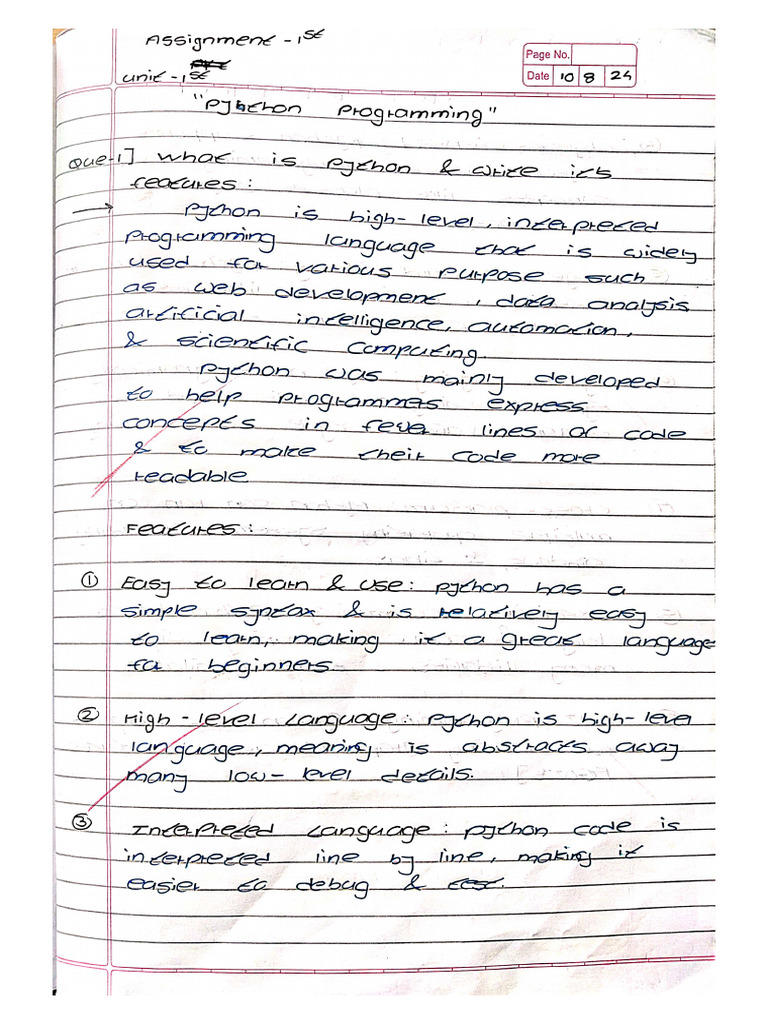 Assignment - 1st
Page No.
Unit - 1st
Date 10 8 24
"Python Programming"
Que-1] What is Python & write its
features :
→ Python is high-level, interpreted
programming language that is widely
used for various purpose such
as web development, data analysis
artificial intelligence, automation,
& scientific computing.
Python was mainly developed
to help programmers express
concepts in fewer lines of code
& to make their code more
readable
Features :
① Easy to learn & use : Python has a
simple syntax & is relatively easy
to learn, making it a great language
for beginners.
② High-level Language : Python is high-level
language, meaning is abstracts away
many low-level details.
③ Interpreted Language : Python code is
interpreted line by line, making it
easier to debug & test.